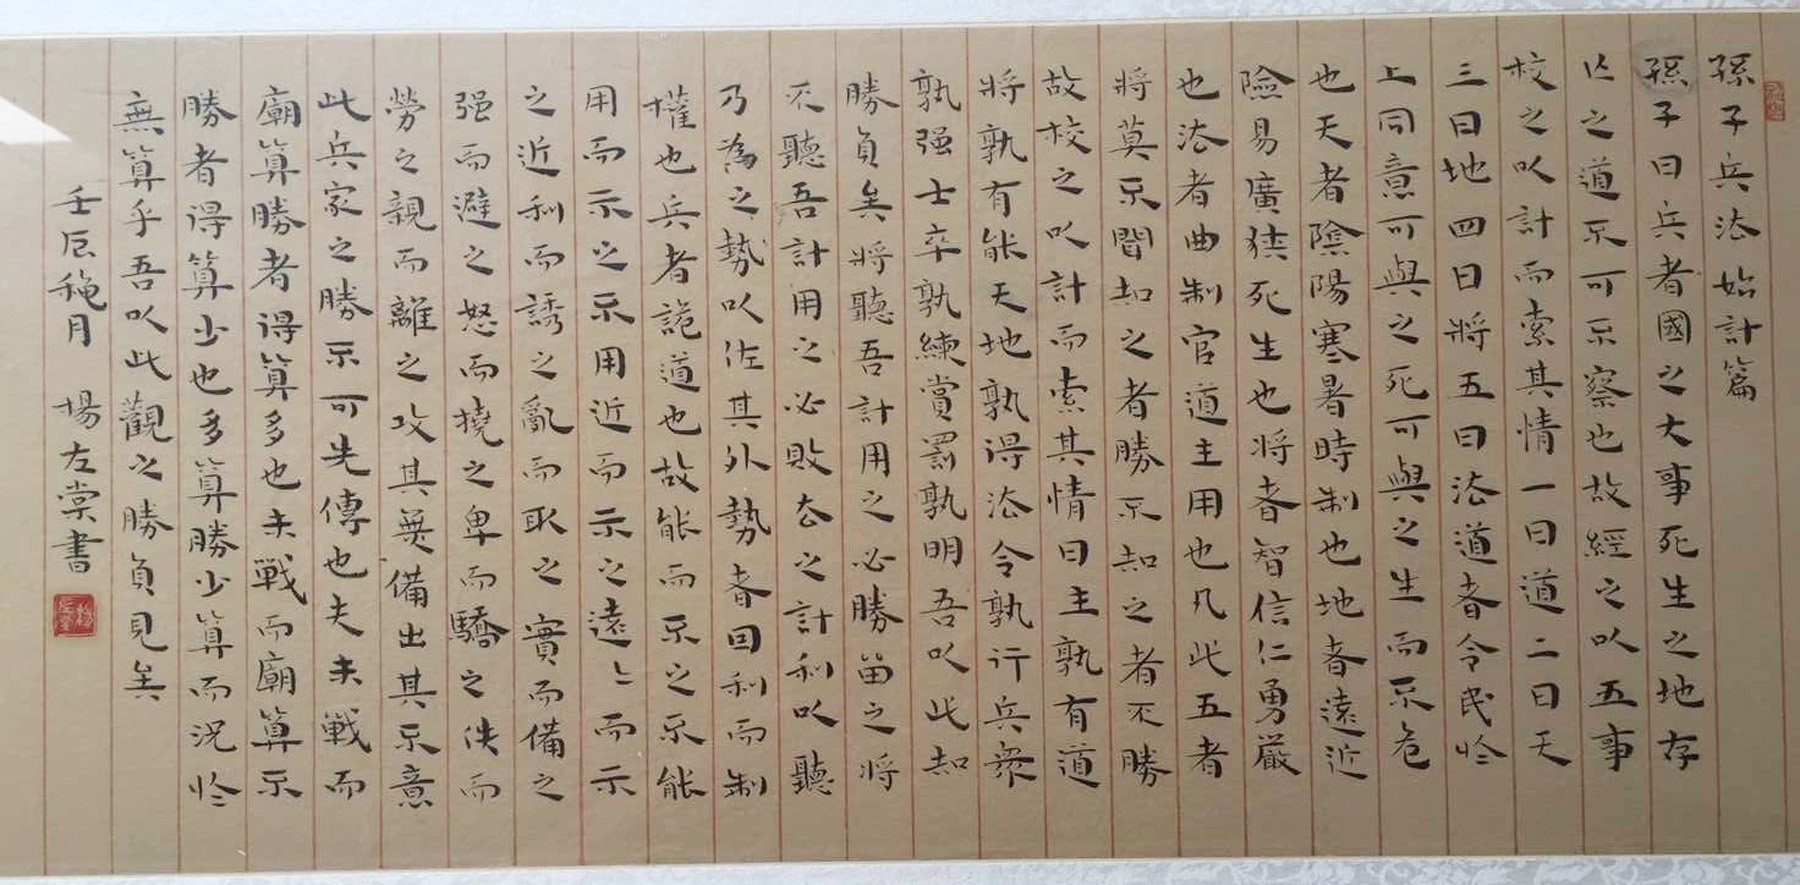 孫子兵法始計篇
孫子曰兵者國之大事死生之地存
亾之道不可不察也故經之以五事
校之以計而索其情一曰道二曰天
三曰地四曰將五曰法道者令民於
上同意可與之死可與之生而不危
也天者陰陽寒暑時制也地者遠近
險易廣狹死生也將者智信仁勇嚴
也法者曲制官道主用也凡此五者
將莫不聞知之者勝不知之者不勝
故校之以計而索其情曰主孰有道
將孰有能天地孰得法令孰行兵衆
孰强士卒孰練賞罰孰明吾以此知
勝負矣將聽吾計用之必勝留之將
不聽吾計用之必敗去之計利以聽
乃為之勢以佐其外勢者因利而制
權也兵者詭道也故能而示之不能
用而示之不用近而示之遠〻而示
之近利而誘之亂而取之實而備之
强而避之怒而撓之卑而驕之佚而
勞之親而離之攻其無備出其不意
此兵家之勝不可先傳也夫未戰而
廟算勝者得算多也未戰而廟算不
勝者得算少也多算勝少算而況於
無算乎吾以此觀之勝負見矣
壬辰穐月 楊左棠書